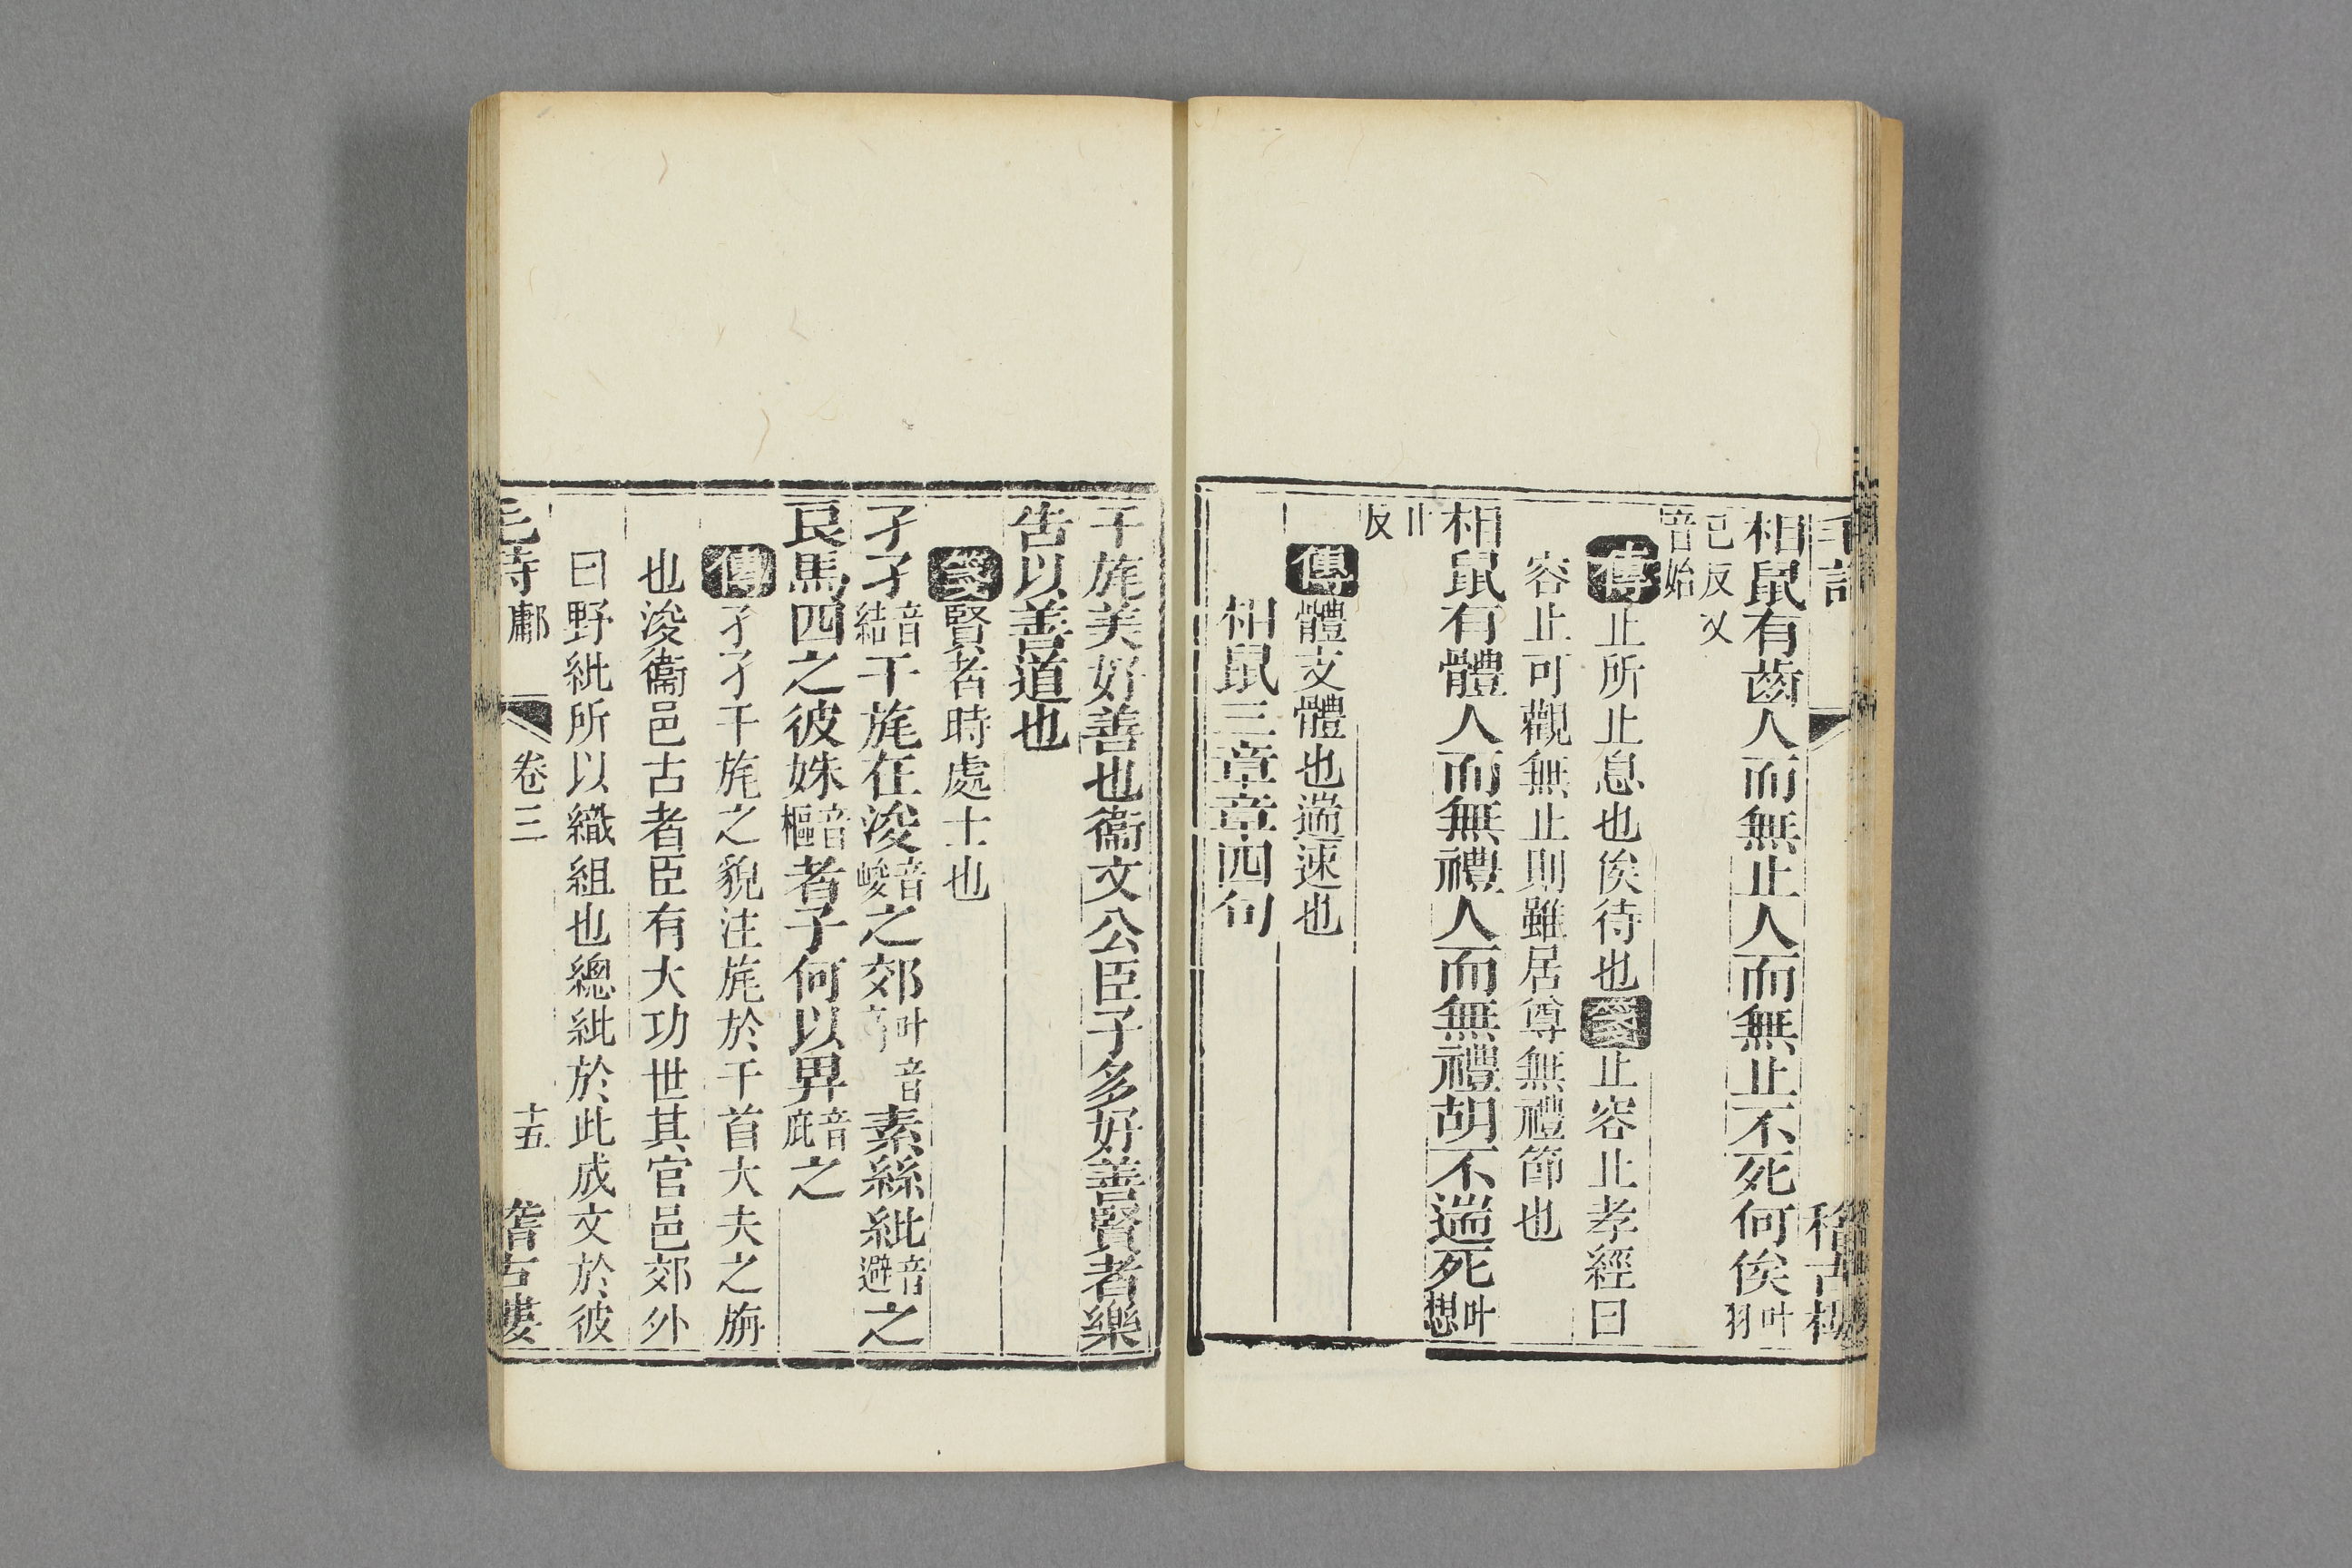 相鼠有齒人而無止人而無止不死何俟叶羽
已反又
音始
傳止所止息也俟待也箋止容止孝經曰
容止可觀無止則雖居尊無禮節也
相鼠有體人而無禮人而無禮胡不遄死叶想
止
反
傳體支體也遄速也
相鼠三章章四句
干旄美好善也衞文公臣子多好善賢者樂
告以善道也
箋賢者時處士也
孑孑音結干旄在浚音峻之郊叶音高素絲紕音避之
良馬四之彼姝音樞者子何以畀音庇之
傳孑孑干旄之貌注旄於干首大夫之旃
也浚衞邑古者臣有大功世其官邑郊外
曰野紕所以織組也總紕於此成文於彼
毛詩 鄘 卷三 十五 稽古樓